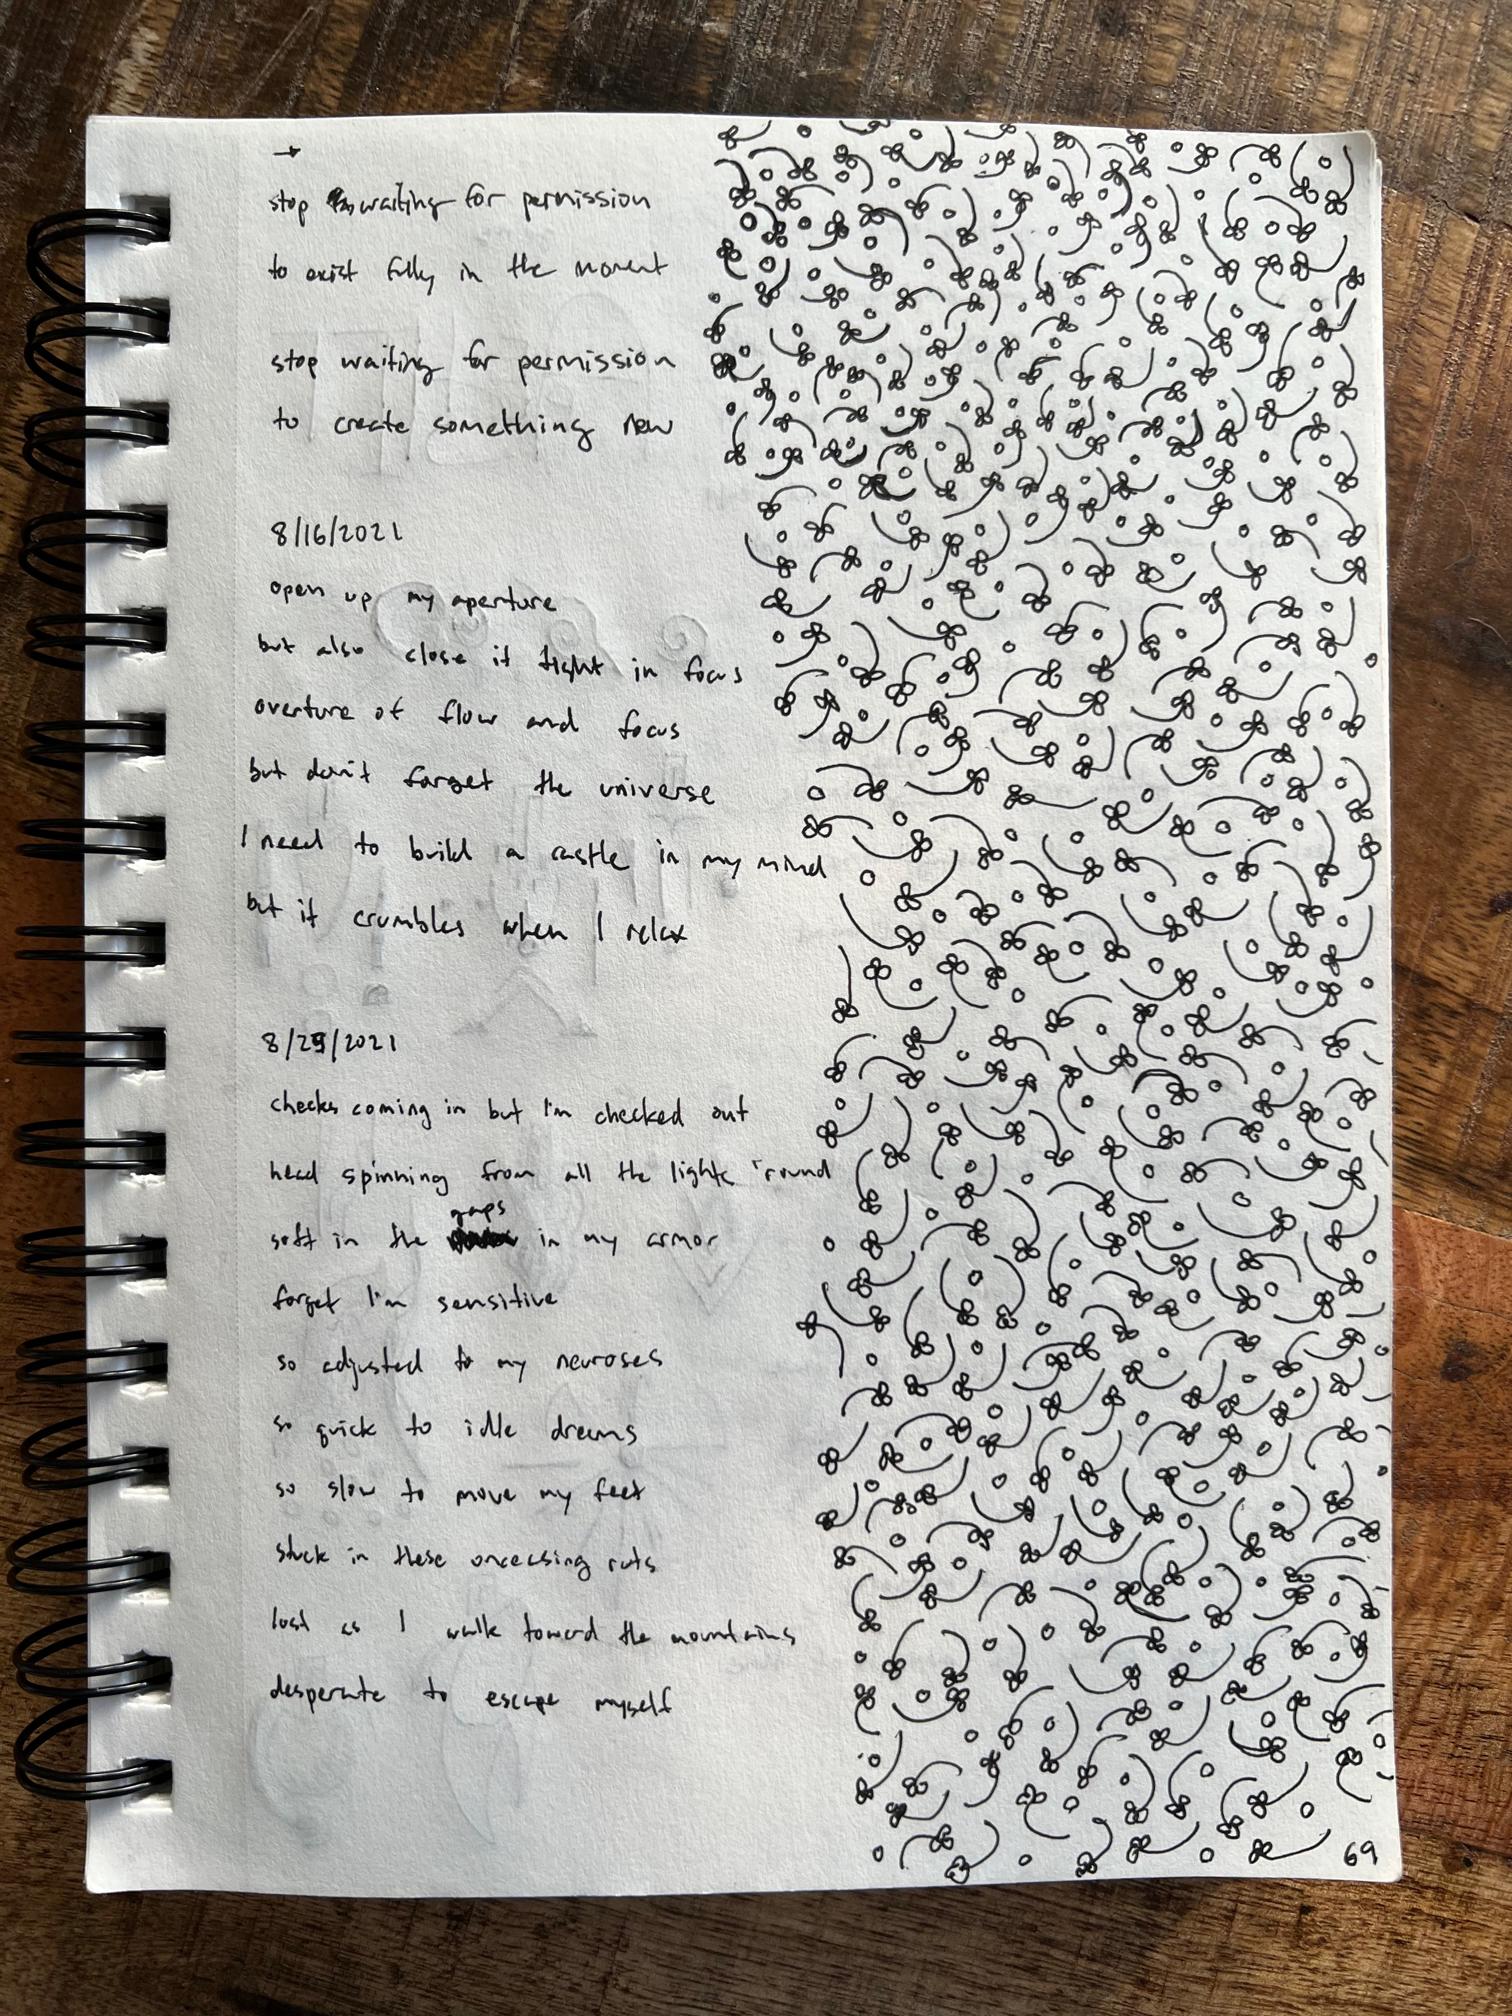 →
stop waiting for permission
to exist fully in the moment
stop waiting for permission
to create something new
8/16/2021
open up my aperture
but also close it tight in focus
overture of flow and focus
but don't forget the universe
I need to build a castle in my mind
but it crumbles when I relax
8/25/2021
checks coming in but I'm checked out
head spinning from all the lights 'round
soft in the gaps in my armor
forget I'm sensitive
so adjusted to my neuroses
so quick to idle dreams
so slow to move my feet
stuck in these unceasing ruts
lost as I walk toward the mountains
desperate to escape myself
69